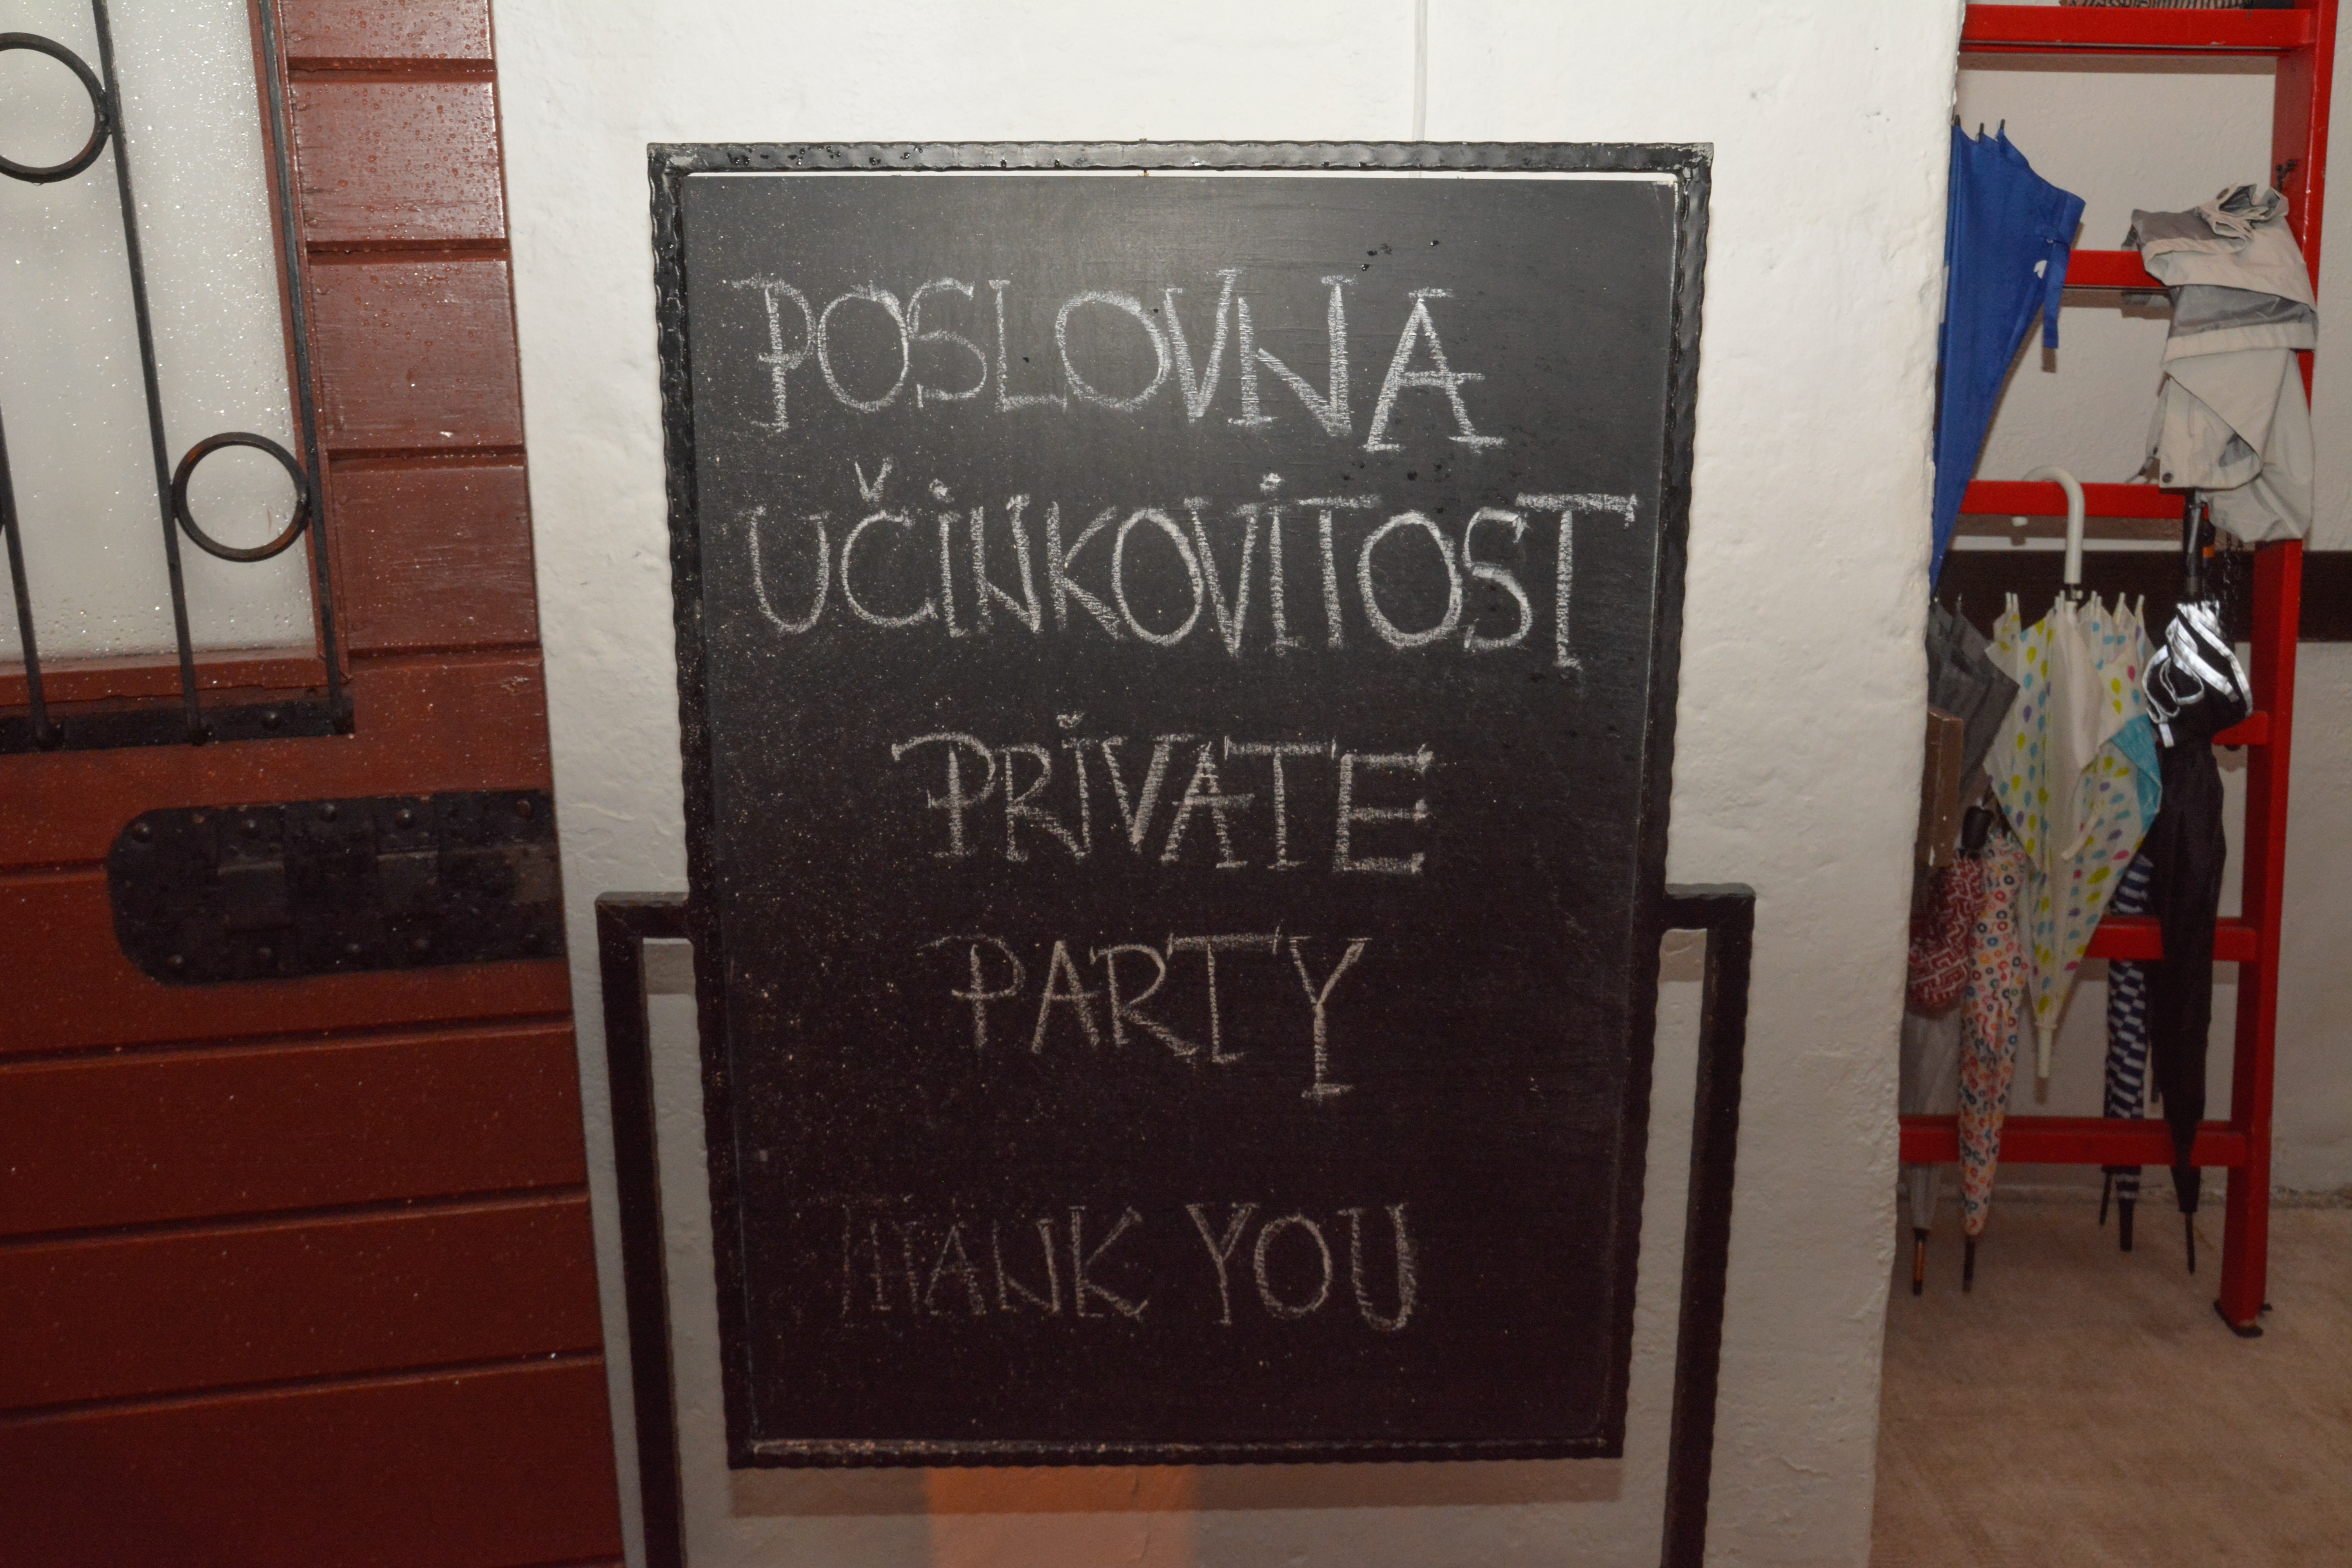 POSLOVNA
UČINKOVITOST
PRIVATE
PARTY
THANK YOU